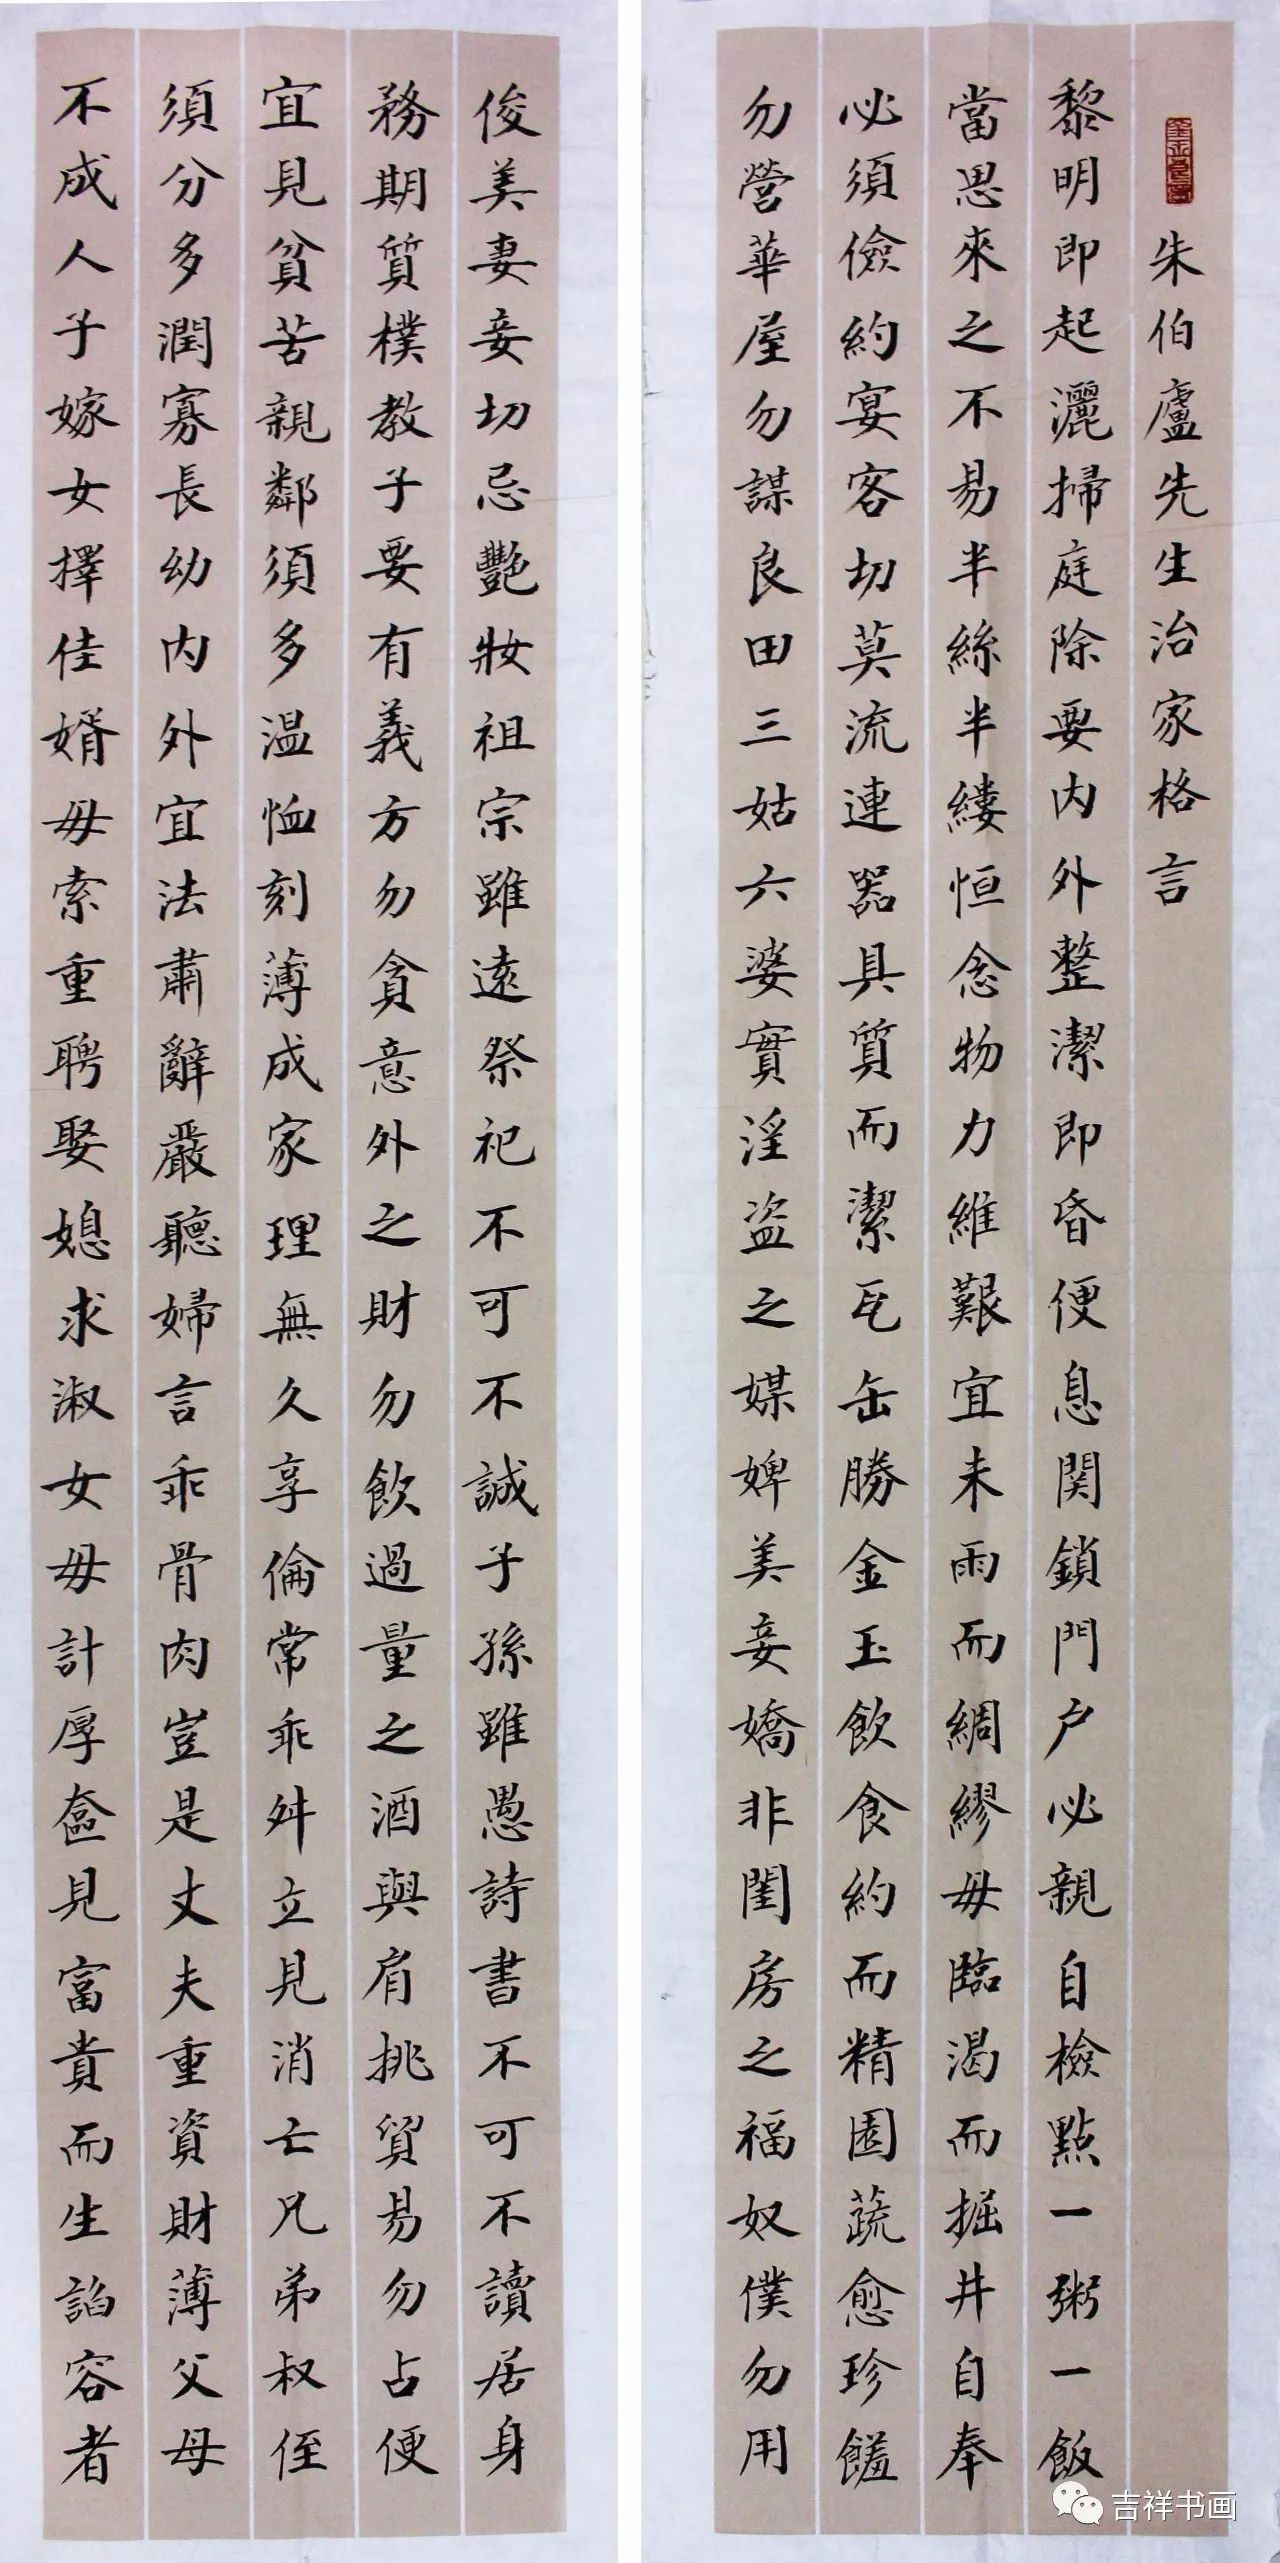 朱伯廬先生治家格言
黎明即起灑掃庭除要内外整潔即昏便息関鎖門户必親自檢點一粥一飯
當思來之不易半絲半縷恒念物力維艱宜未雨而綢繆毋臨渴而掘井自奉
必須儉約宴客切莫流連器具質而潔瓦缶勝金玉飲食約而精園蔬愈珍饈
勿營華屋勿謀良田三姑六婆實淫盗之媒婢美妾嬌非閨房之福奴僕勿用
俊美妻妾切忌艷妝祖宗雖遠祭祀不可不誠子孫雖愚詩書不可不讀居身
務期質樸教子要有義方勿貪意外之財勿飲過量之酒與肩挑貿易勿占便
宜見貧苦親鄰須多温恤刻薄成家理無久享倫常乖舛立見消亡兄弟叔侄
須分多潤寡長幼内外宜法肅辭嚴聽婦言乖骨肉豈是丈夫重資財薄父母
不成人子嫁女擇佳婿毋索重聘娶媳求淑女毋計厚奩見富貴而生諂容者
吉祥书画